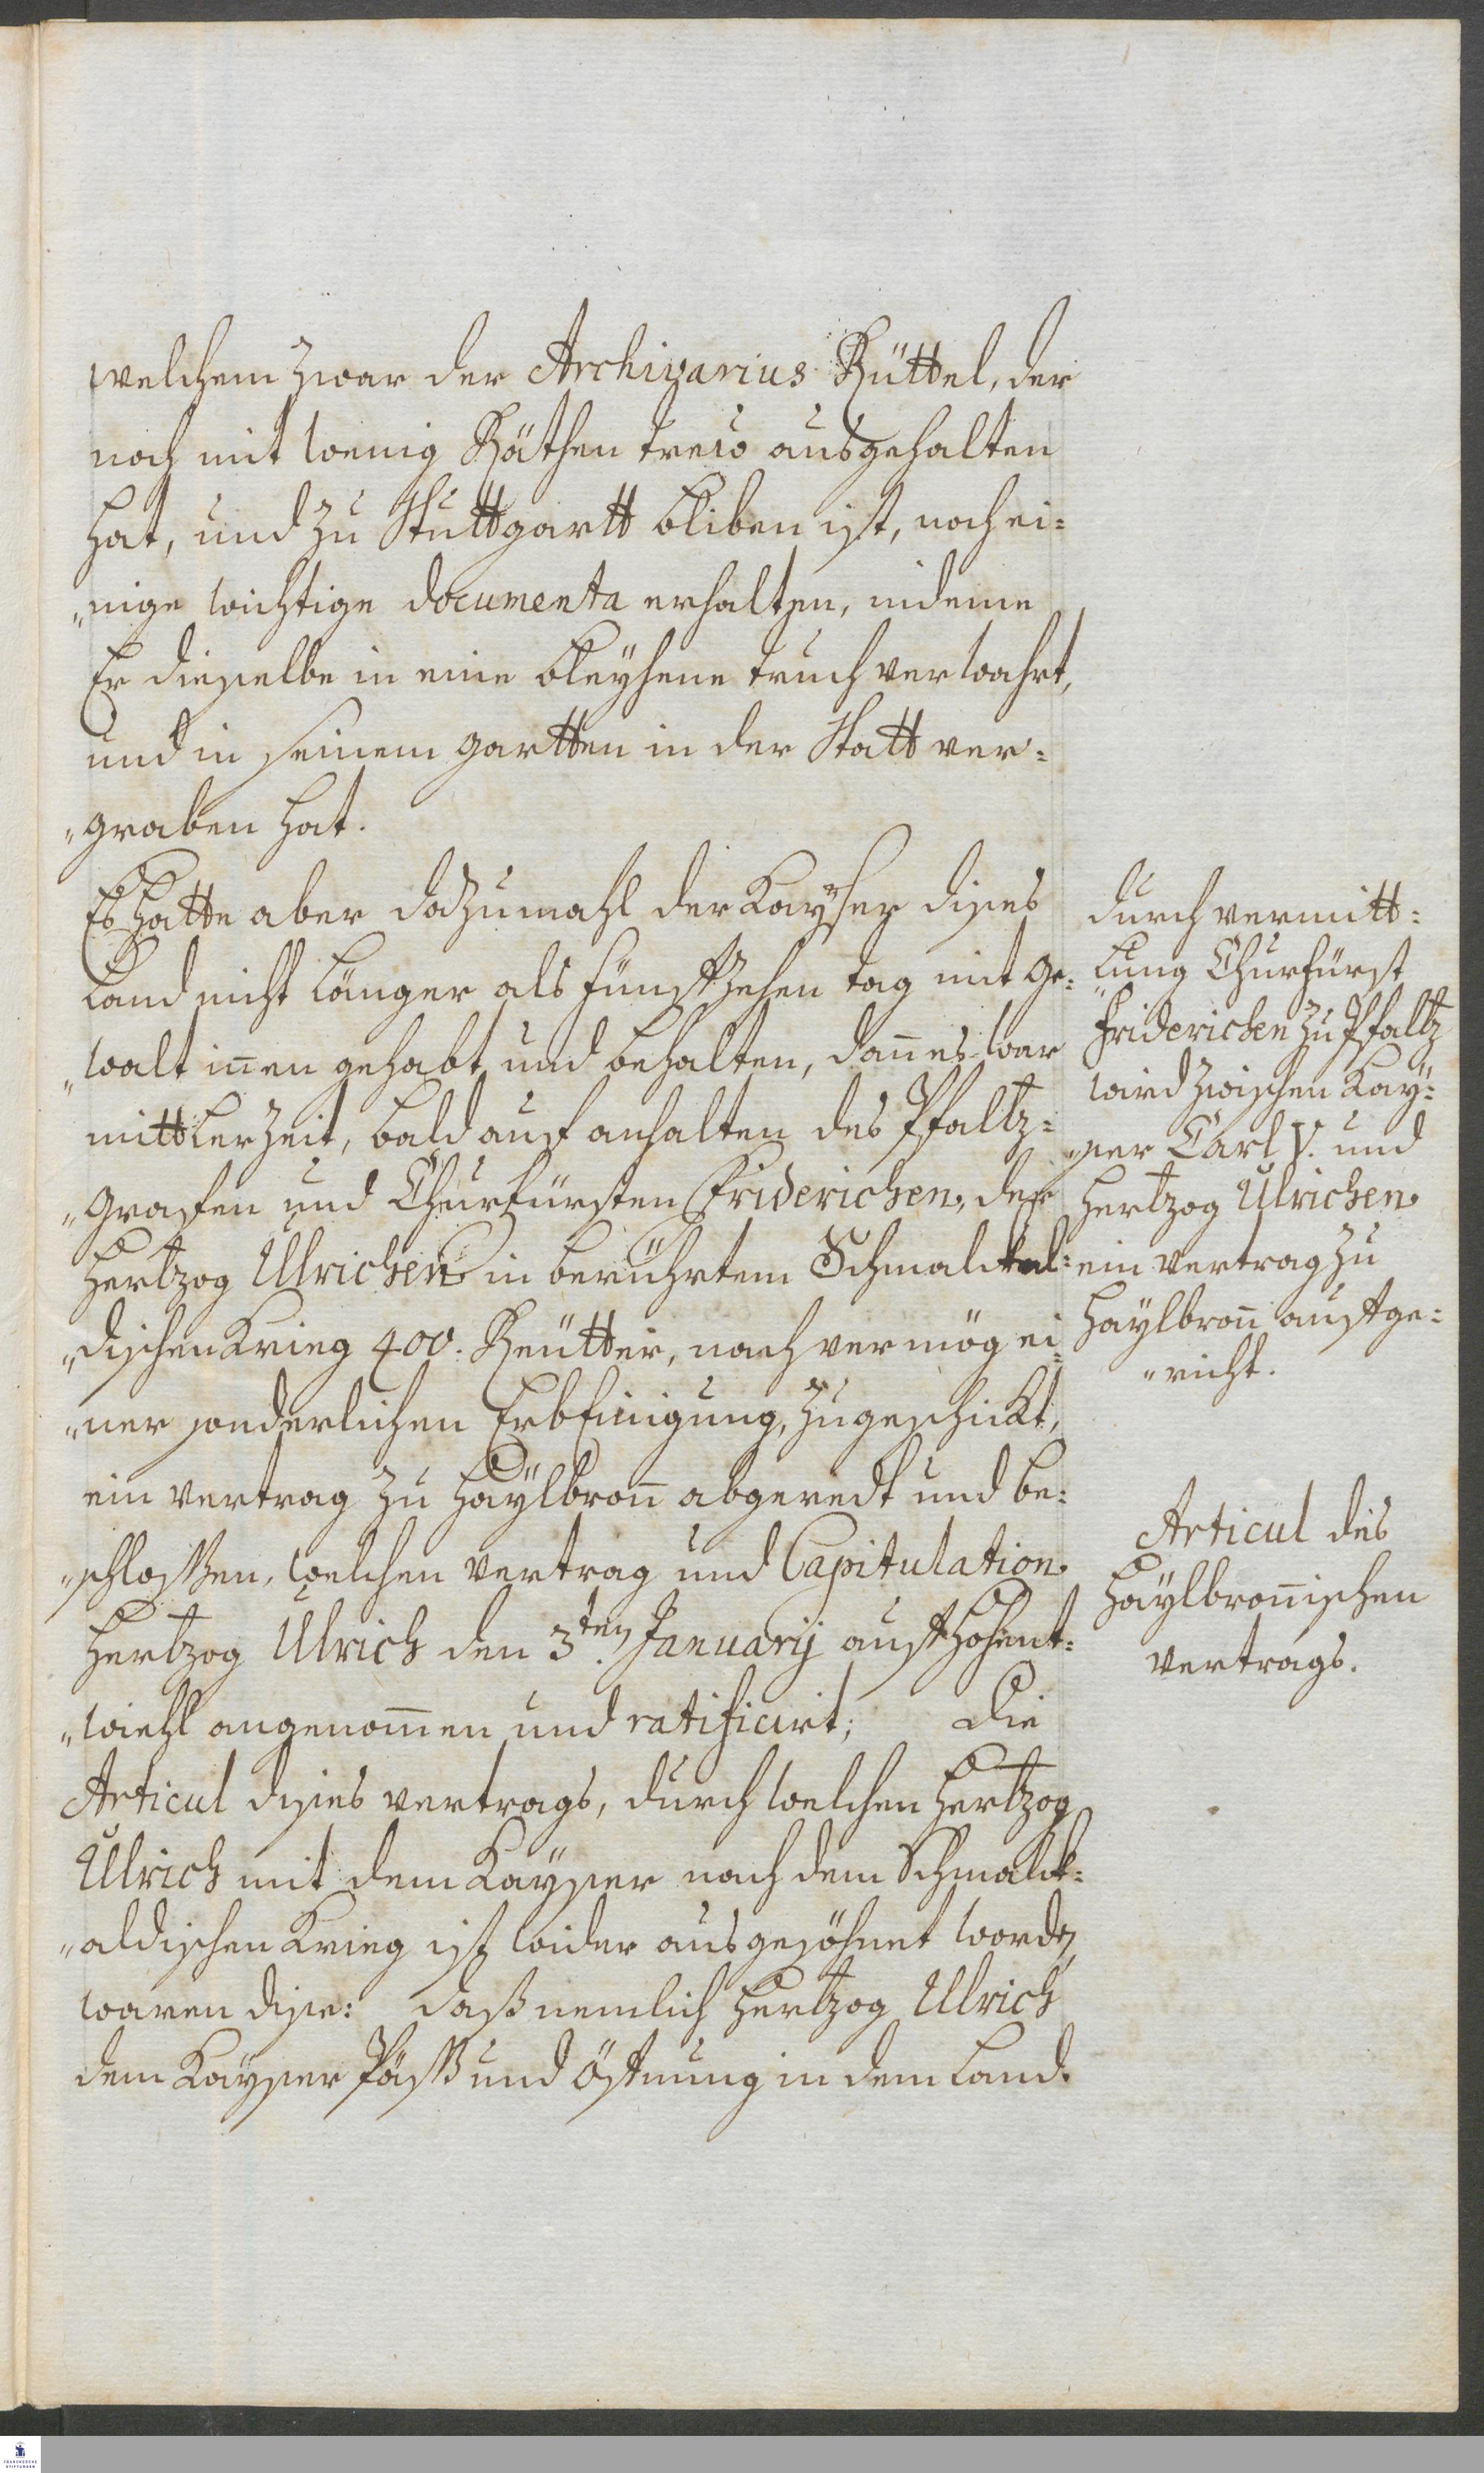 welchem zwar der Archivarius Rüttel, der
noch mit wenig Räthen trew ausgehalten
hat, und zu Stuttgartt bliben ist, noch ei=
„nige wichtige documenta erhalten, indeme
Er dieselbe in eine bleyhene truch verwahrt,
und in seinem gartten in der Statt ver=
„graben hat.
Es hatte aber dazumahl der Kayser dises
Land nicht länger als fünffzehen tag mit ge=
„walt iñen gehabt und behalten, dañ es war
mittlerzeit, bald auf anhalten des Pfaltz=
„grafen und Churfürsten Friderichen, der
Hertzog Ulrichen in berührtem Schmalckal=
„dischen Krieg 400. Reütter, nach vermög ei=
„ner sonderlichen Erbeinigung, zugeschickt,
ein vertrag zu Haÿlbroñ abgeredt und be=
„schlossen, welchen vertrag und Capitulation
Hertzog Ulrich den 3ten. Januarij auff Hohent=
„wiehl angenom̃en und ratificirt; Die
Articul dises vertrags, durch welchen Hertzog
Ulrich mit dem Kayser nach dem Schmalck=
„aldischen Krieg ist wider ausgesöhnet worden,
waren dise: daß nemlich Hertzog Ulrich
dem Kayser Päß und öffnung in dem Land.
durch vermitt=
„lung Churfürst
Friderichen zu Pfaltz
wird zwischen Kaÿ=
„ser Carl V. und
Hertzog Ulrichen
ein vertrag zu
Haÿlbroñ auffge=
„richt.
Articul des
Haÿlbroñischen
vertrags.
FRANCKESCHE
STIFTUNGEN